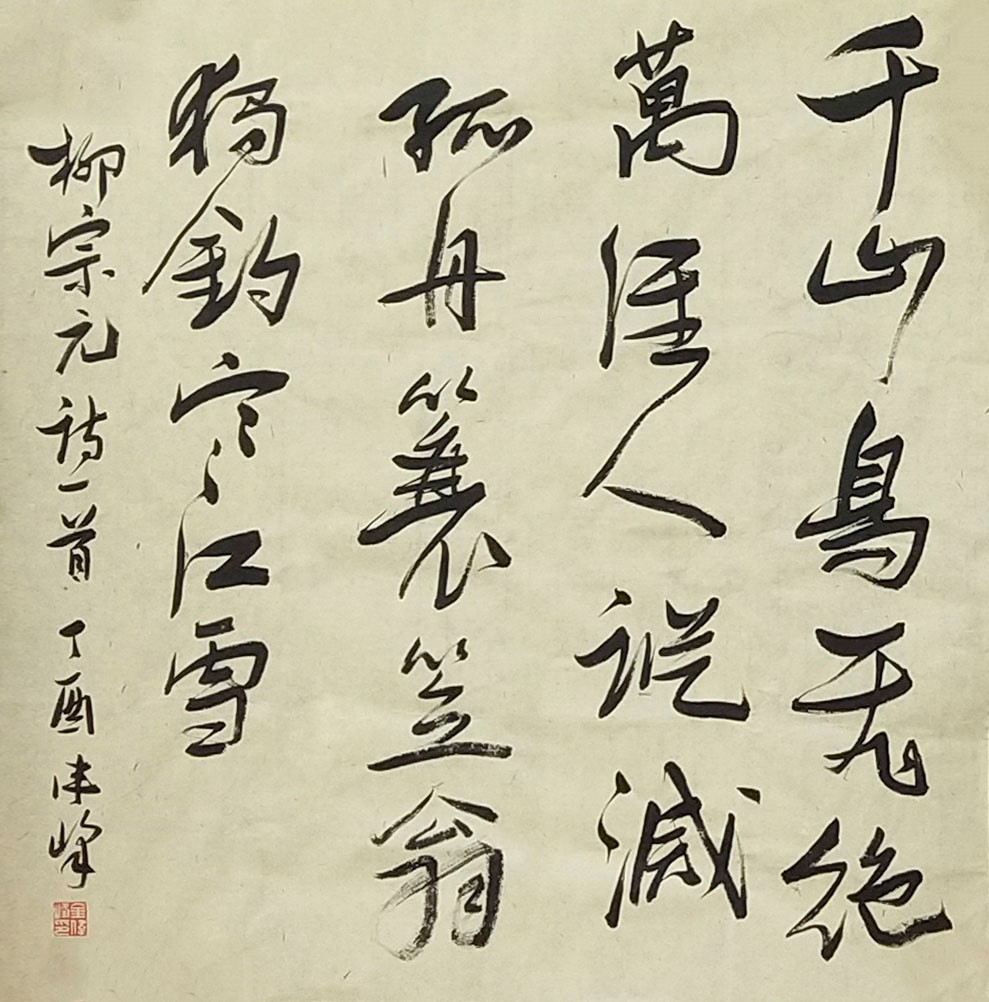 千山鳥无絕
萬徑人蹤滅
孤舟簑笠翁
獨釣寒江雪
柳宗元詩一首 丁酉 峰